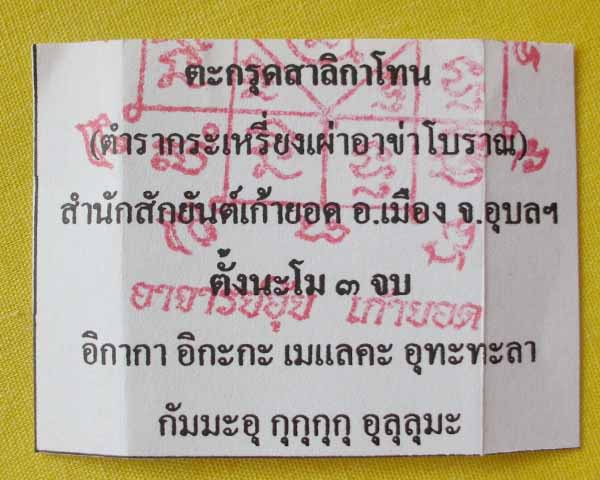 ตะกรุดสาลิกาโทน
(ตำรากระเหรี่ยงเผ่าอาข่าโบราณ)
สำนักสักยันต์เก้ายอด อ.เมือง จ.อุบลฯ
ตั้งนะโม ๓ จบ
อาจารย์อุ๊ย เก้ายอด
อิกากา อิกะกะ เมแลคะ อุทะทะลา
กัมมะอุ กุกุกุกุ อุลุลุมะ